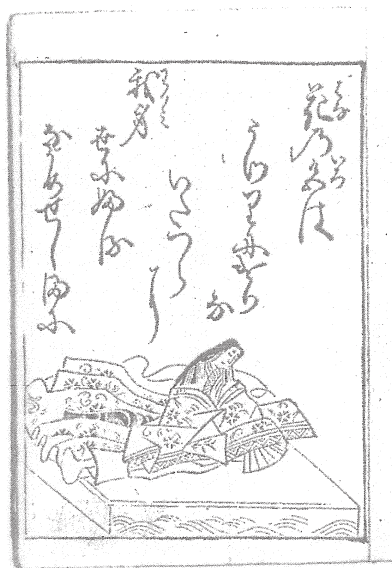 花の色は
うつりにけり
な
いたつら
に
我身
世にふる
なかめせしまに